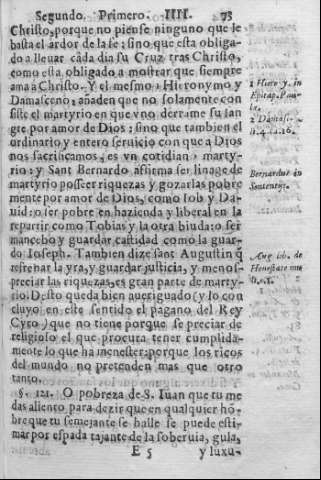 Segundo. Primero. IIII. 73
Christo, porque no piense ninguno que le
basta el ardor de la fe; sino que esta obliga-
do a lleuar cada dia su Cruz tras Christo,
como esta obligado a mostrar que siempre
ama à Christo. Y el mesmo Hieronymo y
Damasceno; añaden que no solamente con
siste el martyrio en que vno derrame su san
gre por amor de Dios; sino que tambien el
ordinario, y entero seruicio con que a Dios
nos sacrificamos, es vn cotidiano marty-
rio: y Sant Bernardo affirma ser linage de
martyrio posseer riquezas y gozarlas pobre
mente por amor de Dios, como Iob y Da-
uid: o ser pobre en hazienda y liberal en la
repartir como Tobias y la otra biuda: o ser
mancebo y guardar castidad como la guar-
do Ioseph. Tambien dize sant Augustin q̃
refrenar la yra, y guardar justicia, y menos-
preciar las riquezas, es gran parte de marty-
rio. Desto queda bien aueriguado (y lo con
cluyo en este sentido el pagano del Rey
Cyro) que no tiene porque se preciar de
religioso el que procura tener cumplida-
mente lo que ha menester; porque los ricos
del mundo no pretenden mas que otro
tanto.
§. 121. O pobreza de S. Iuan que tu me
das aliento para dezir que en qualquier hõ-
bre que tu semejante se halle se puede esti-
mar por espada tajante de la soberuia, gula,
E 5 y luxu-
1 Hiero y. in
Epitap. Pau-
læ.
2 Damasc.
li. 4. ca. 16.
Bernardus in
Sententijs.
Aug. lib. de